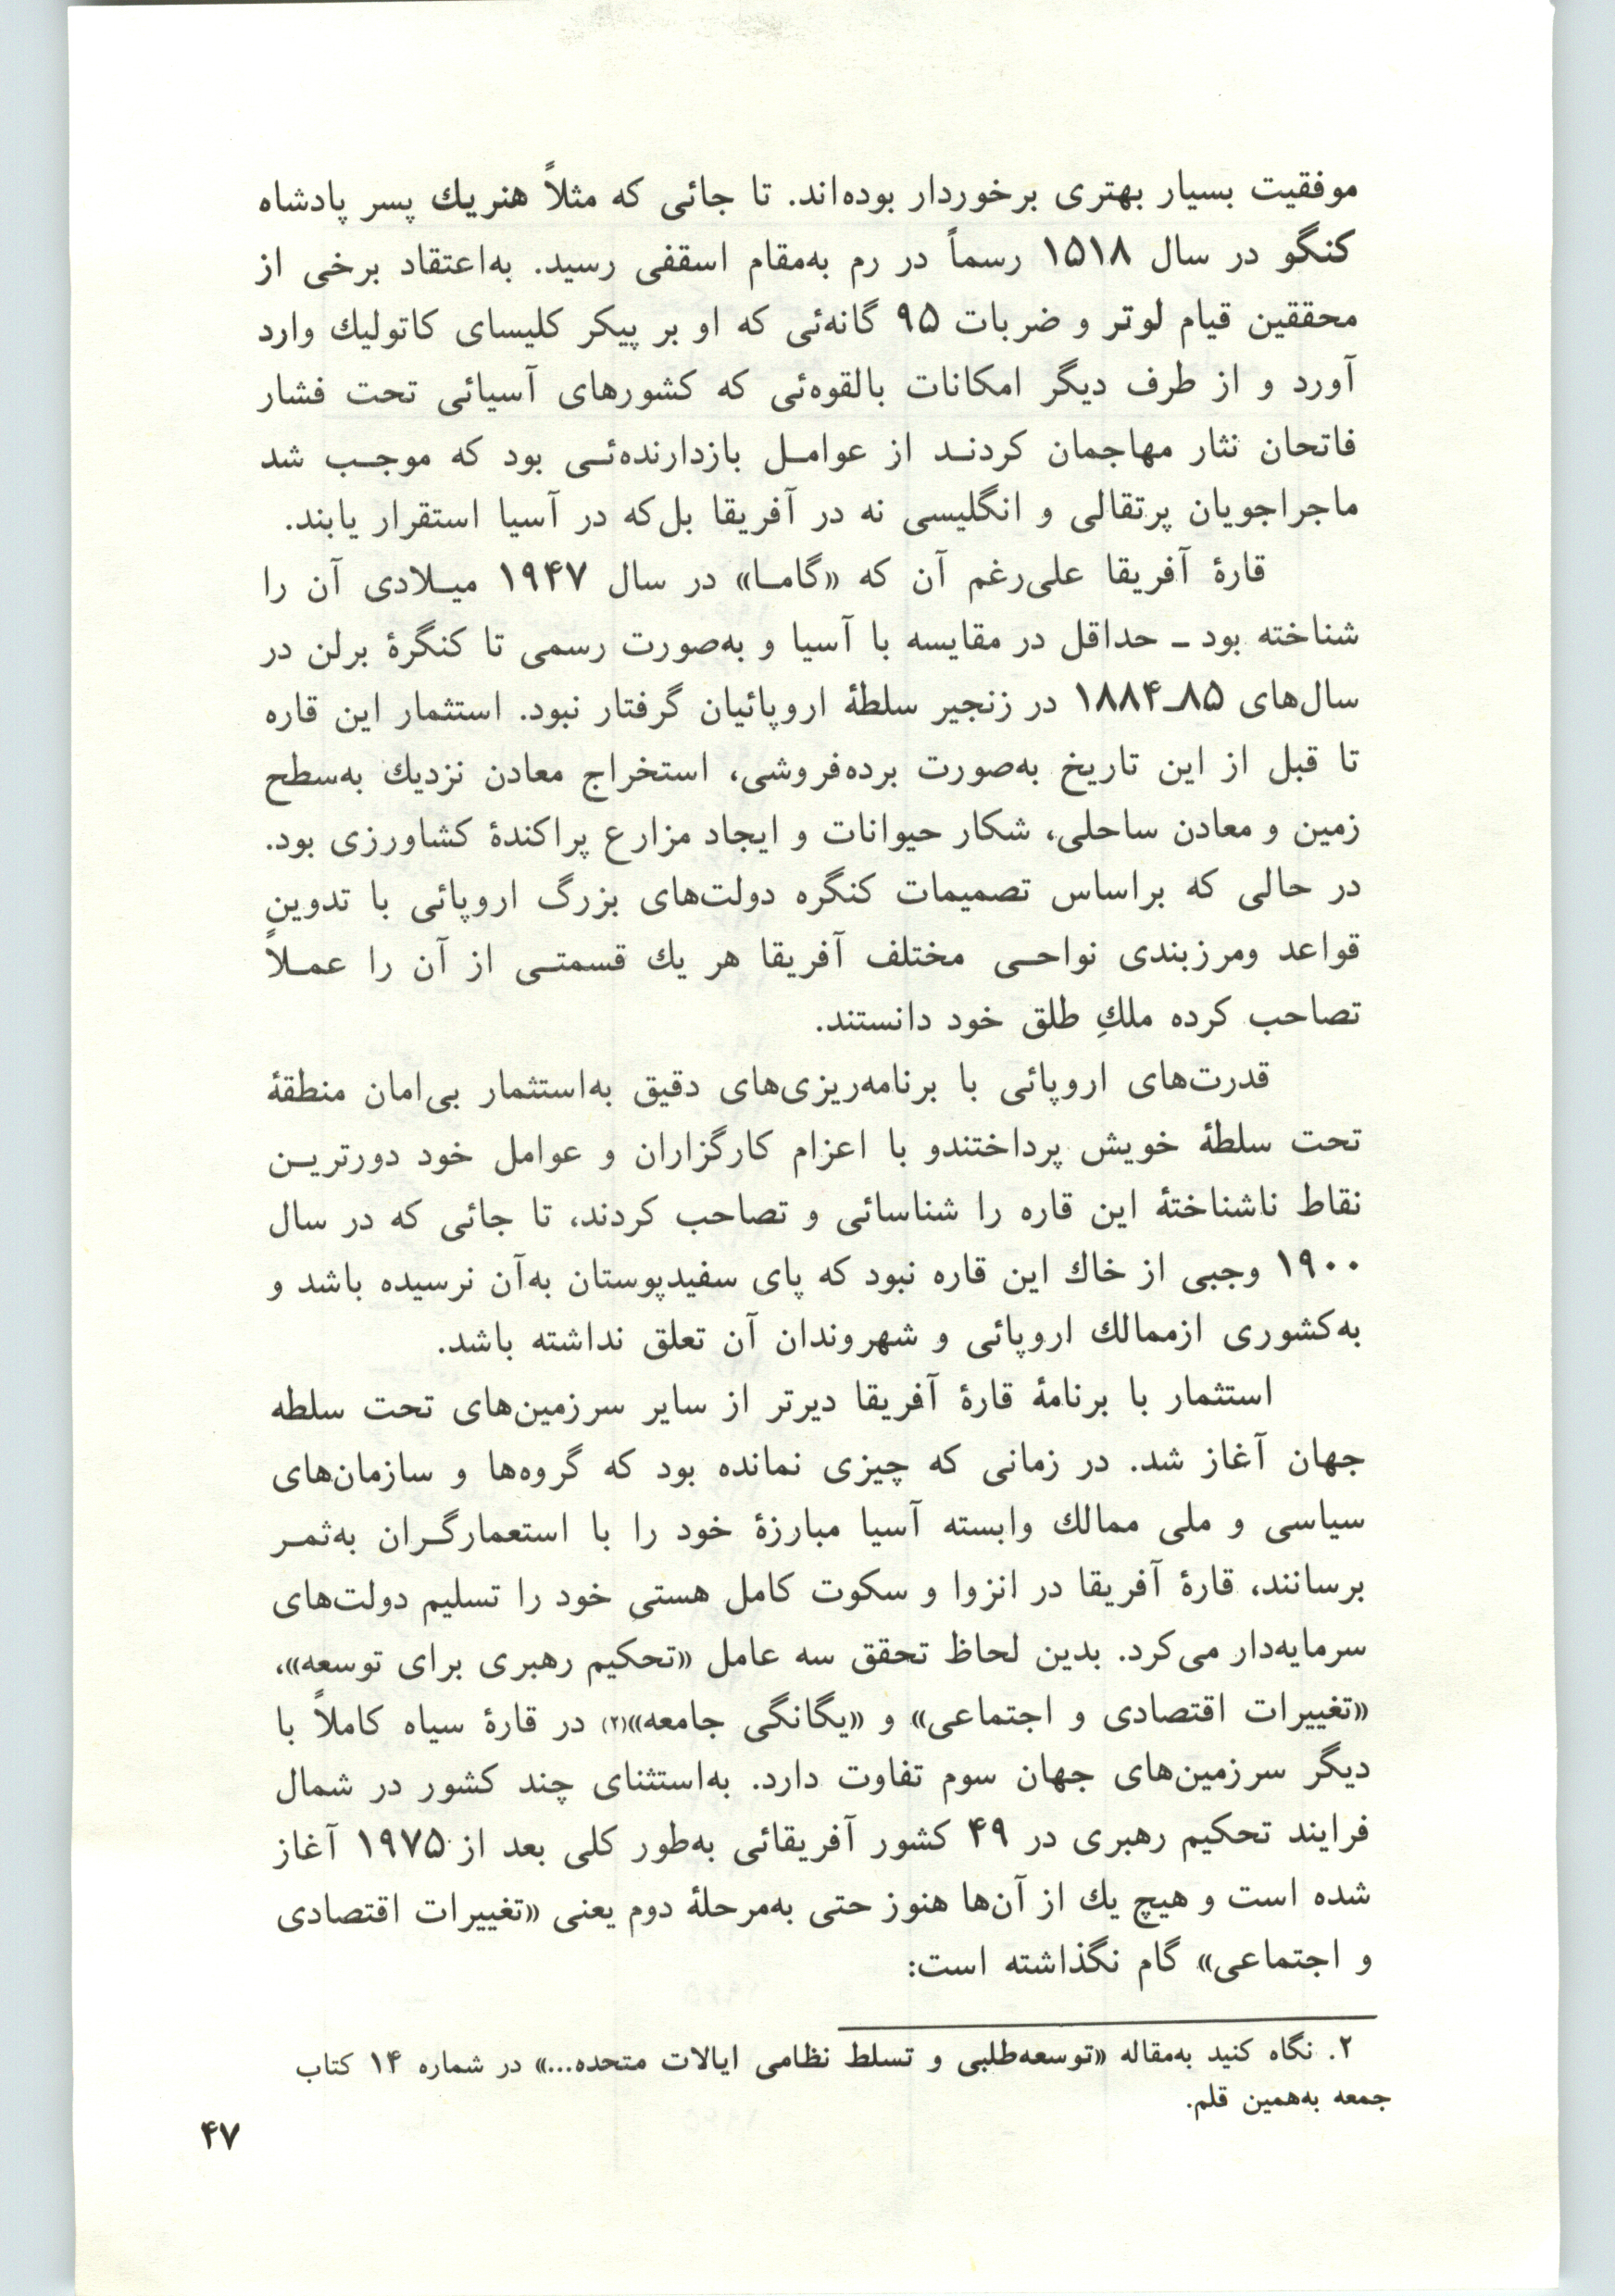 موفقیت بسیار بهتری برخوردار بوده‌اند. تا جائی که مثلاً هنریك پسر پادشاه
کنگو در سال ۱۵۱۸ رسماً در رم به‌مقام اسقفی رسید. به‌اعتقاد برخی از
محققین قیام لوتر و ضربات ۹۵ گانه‌ئی که او بر پیکر کلیسای کاتولیك وارد
آورد و از طرف دیگر امکانات بالقوه‌ئی که کشورهای آسیائی تحت فشار
فاتحان نثار مهاجمان کردنـد از عوامـل بازدارنده‌ئـی بود که موجـب شد
ماجراجویان پرتقالی و انگلیسی نه در آفریقا بل‌که در آسیا استقرار یابند.
قارهٔ آفریقا علی‌رغم آن که «گامـا» در سال ۱۹۴۷ میـلادی آن را
شناخته بود ـ حداقل در مقایسه با آسیا و به‌صورت رسمی تا کنگرهٔ برلن در
سال‌های ۸۵ـ۱۸۸۴ در زنجیر سلطهٔ اروپائیان گرفتار نبود. استثمار این قاره
تا قبل از این تاریخ به‌صورت برده‌فروشی، استخراج معادن نزدیك به‌سطح
زمین و معادن ساحلی، شکار حیوانات و ایجاد مزارع پراکندهٔ کشاورزی بود.
در حالی که براساس تصمیمات کنگره دولت‌های بزرگ اروپائی با تدوین
قواعد ومرزبندی نواحـی مختلف آفریقا هر یك قسمتـی از آن را عمـلاً
تصاحب کرده ملكِ طلق خود دانستند.
قدرت‌های اروپائی با برنامه‌ریزی‌های دقیق به‌استثمار بی‌امان منطقهٔ
تحت سلطهٔ خویش پرداختندو با اعزام کارگزاران و عوامل خود دورتریـن
نقاط ناشناختهٔ این قاره را شناسائی و تصاحب کردند، تا جائی که در سال
۱۹۰۰ وجبی از خاك این قاره نبود که پای سفیدپوستان به‌آن نرسیده باشد و
به‌کشوری ازممالك اروپائی و شهروندان آن تعلق نداشته باشد.
استثمار با برنامهٔ قارهٔ آفریقا دیرتر از سایر سرزمین‌های تحت سلطه
جهان آغاز شد. در زمانی که چیزی نمانده بود که گروه‌ها و سازمان‌های
سیاسی و ملی ممالك وابسته آسیا مبارزهٔ خود را با استعمارگـران به‌ثمـر
برسانند، قارهٔ آفریقا در انزوا و سکوت کامل هستی خود را تسلیم دولت‌های
سرمایه‌دار می‌کرد. بدین لحاظ تحقق سه عامل «تحکیم رهبری برای توسعه»،
«تغییرات اقتصادی و اجتماعی» و «یگانگی جامعه»(۲) در قارهٔ سیاه کاملاً با
دیگر سرزمین‌های جهان سوم تفاوت دارد. به‌استثنای چند کشور در شمال
فرایند تحکیم رهبری در ۴۹ کشور آفریقائی به‌طور کلی بعد از ۱۹۷۵ آغاز
شده است و هیچ یك از آن‌ها هنوز حتی به‌مرحلهٔ دوم یعنی «تغییرات اقتصادی
و اجتماعی» گام نگذاشته است:
۲. نگاه کنید به‌مقاله «توسعه‌طلبی و تسلط نظامی ایالات متحده...» در شماره ۱۴ کتاب
جمعه به‌همین قلم.
۴۷